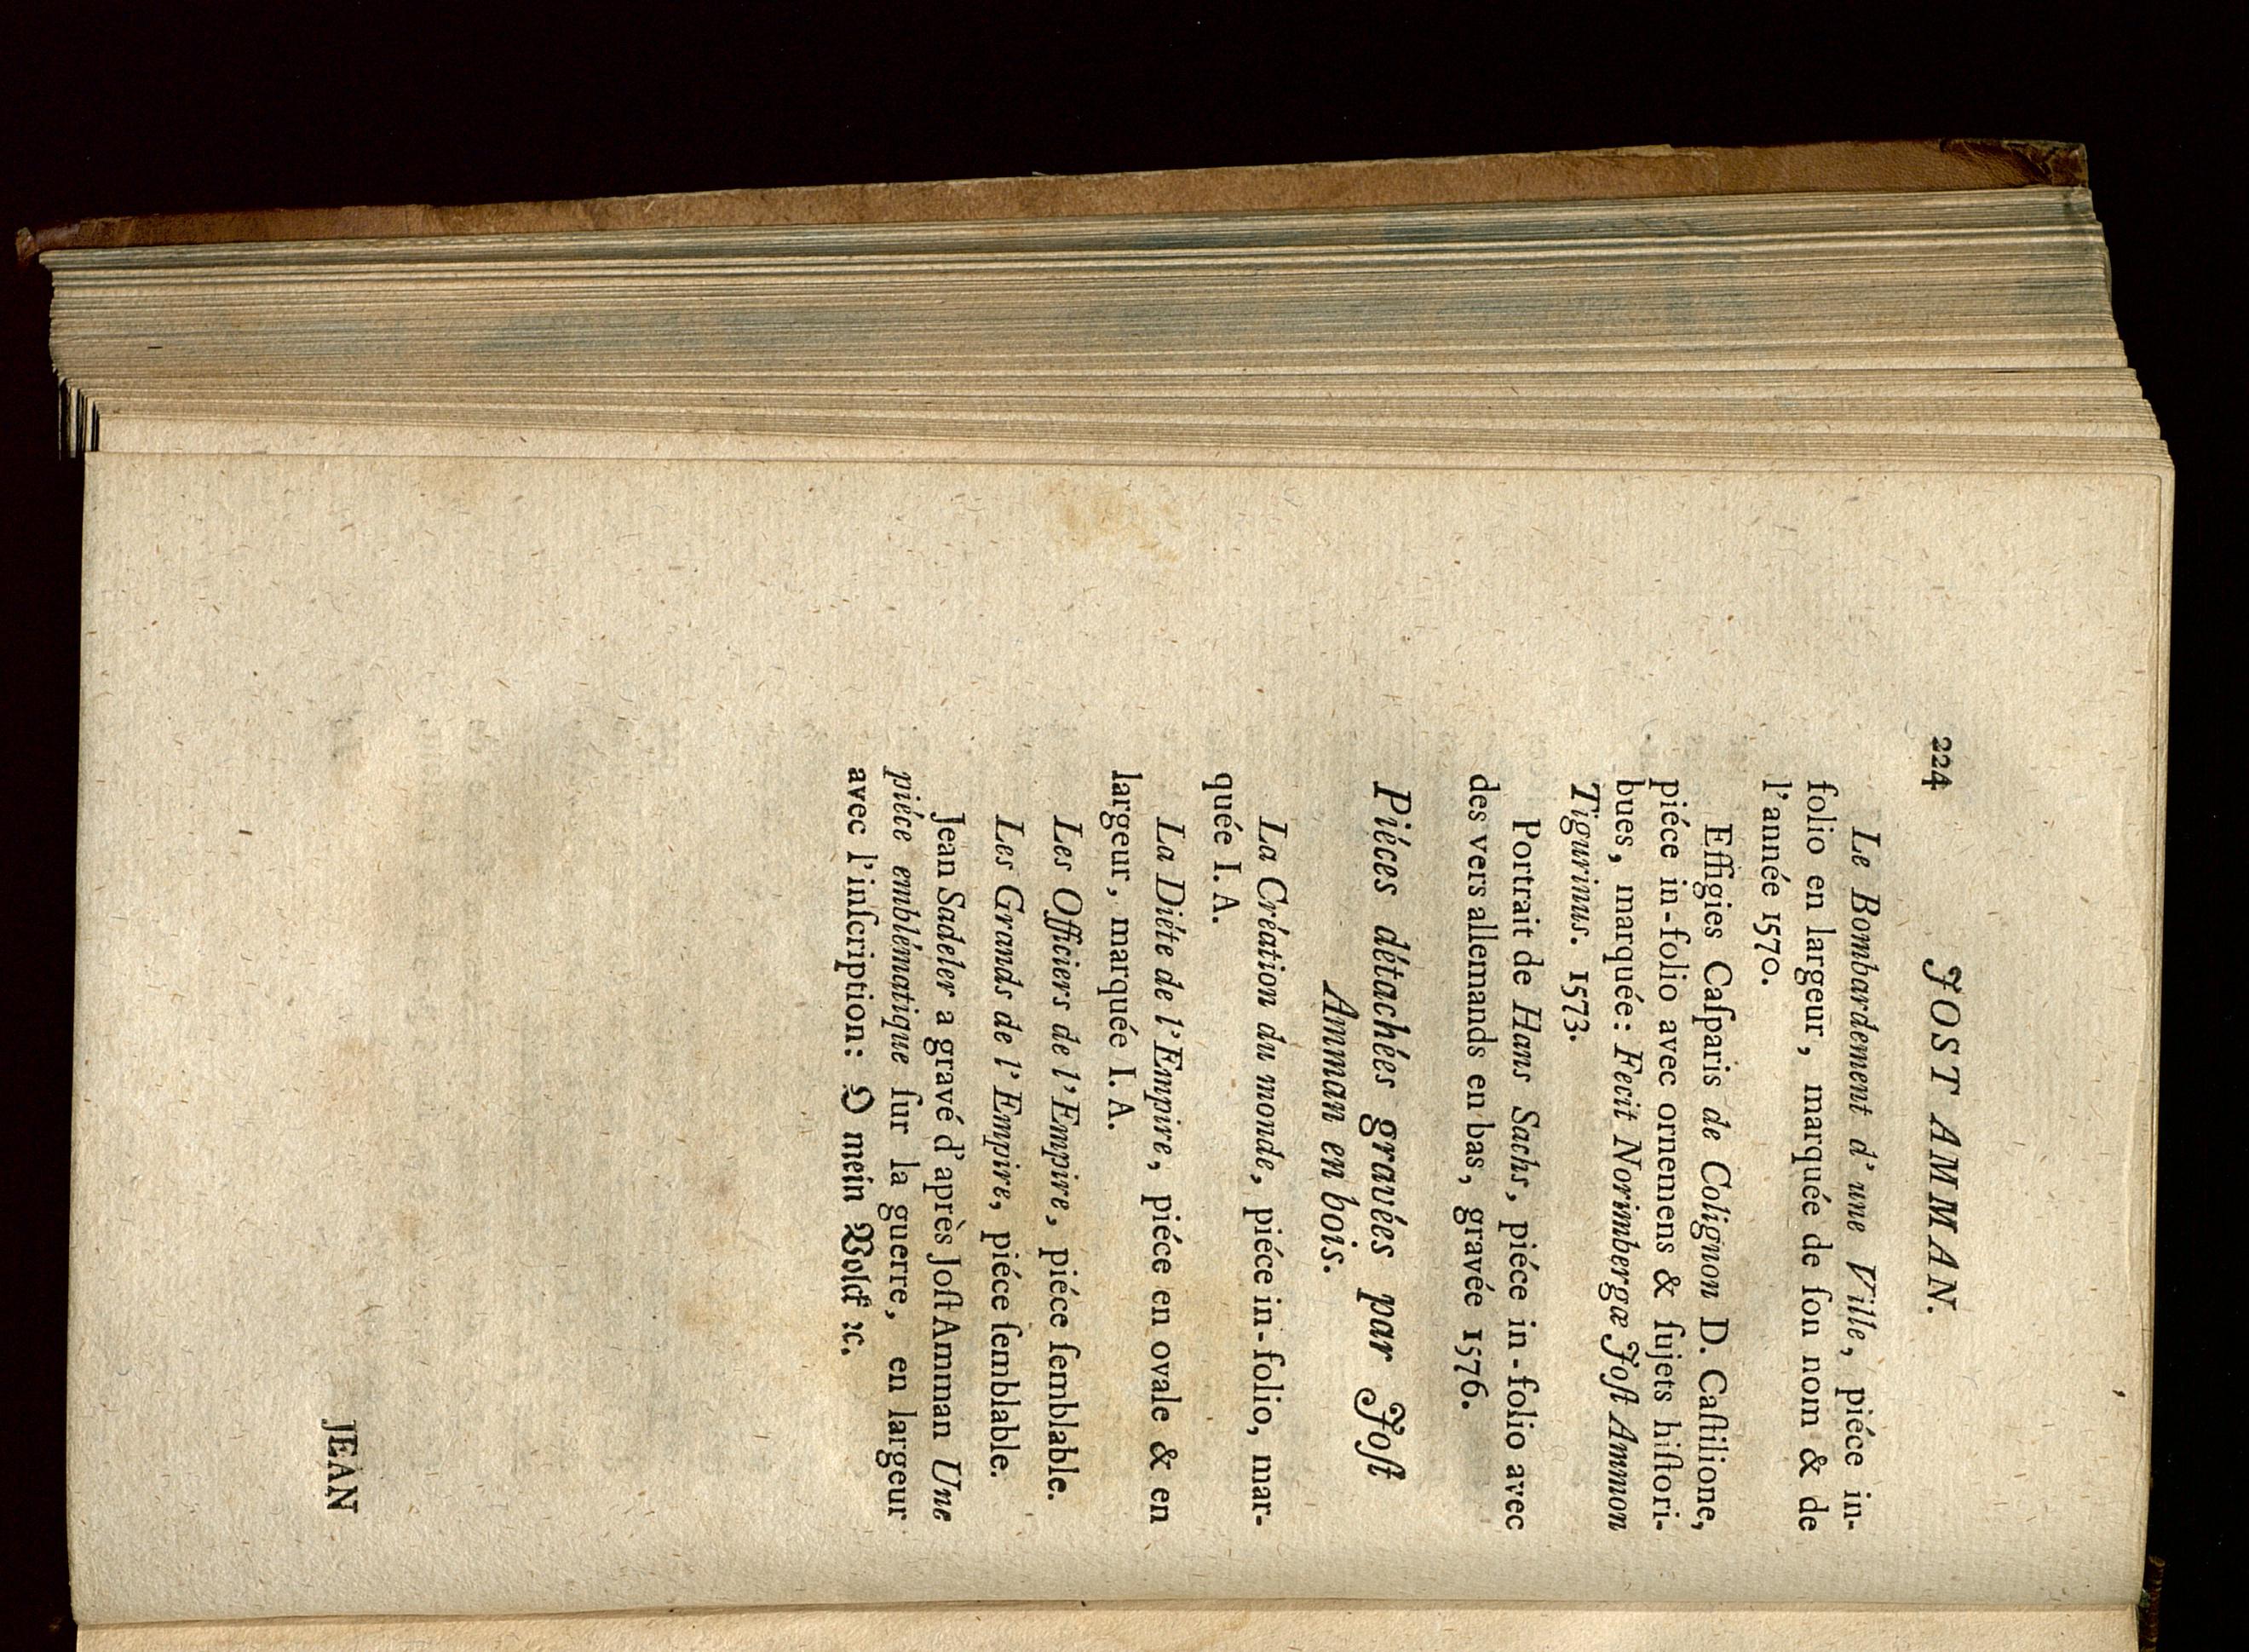 224 JOST AMMAN.
Le Bombardement d'une Ville, piéce in-
folio en largeur, marquée de ſon nom & de
l'année 1570.
Effigies Caſparis de Colignon D. Caſtilione,
piéce in-folio avec ornemens & ſujets hiſtori-
bues, marquée: Fecit Norimbergæ Joſt Ammon
Tigurinus. 1573.
Portrait de Hans Sachs, piéce in-folio avec
des vers allemands en bas, gravée 1576.
Piéces détachées gravées par Joſt
Amman en bois.
La Création du monde, piéce in-folio, mar-
quée I. A.
La Diéte de l'Empire, piéce en ovale & en
largeur, marquée I. A.
Les Officiers de l'Empire, piéce ſemblable.
Les Grands de l'Empire, piéce ſemblable.
Jean Sadeler a gravé d'après Joſt Amman Une
piéce emblématique ſur la guerre, en largeur
avec l'inſcription: O mein Volck ꝛc.
JEAN